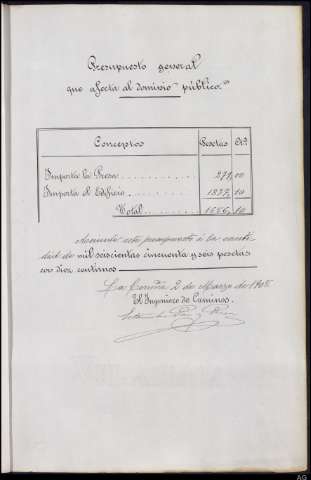 Presupuesto general
que afecta al dominio público.
Conceptos Pesetas Cts
Importa la Presa 271,00
Importa el Edificio 10
Total 1656,10
Asciende este presupuesto á la canti-
dad de mil seiscientas cincuenta y seis pesetas
con diez centimos
La Coruña 2 de Marzo de 1908
El Ingeniero de Caminos.
AG